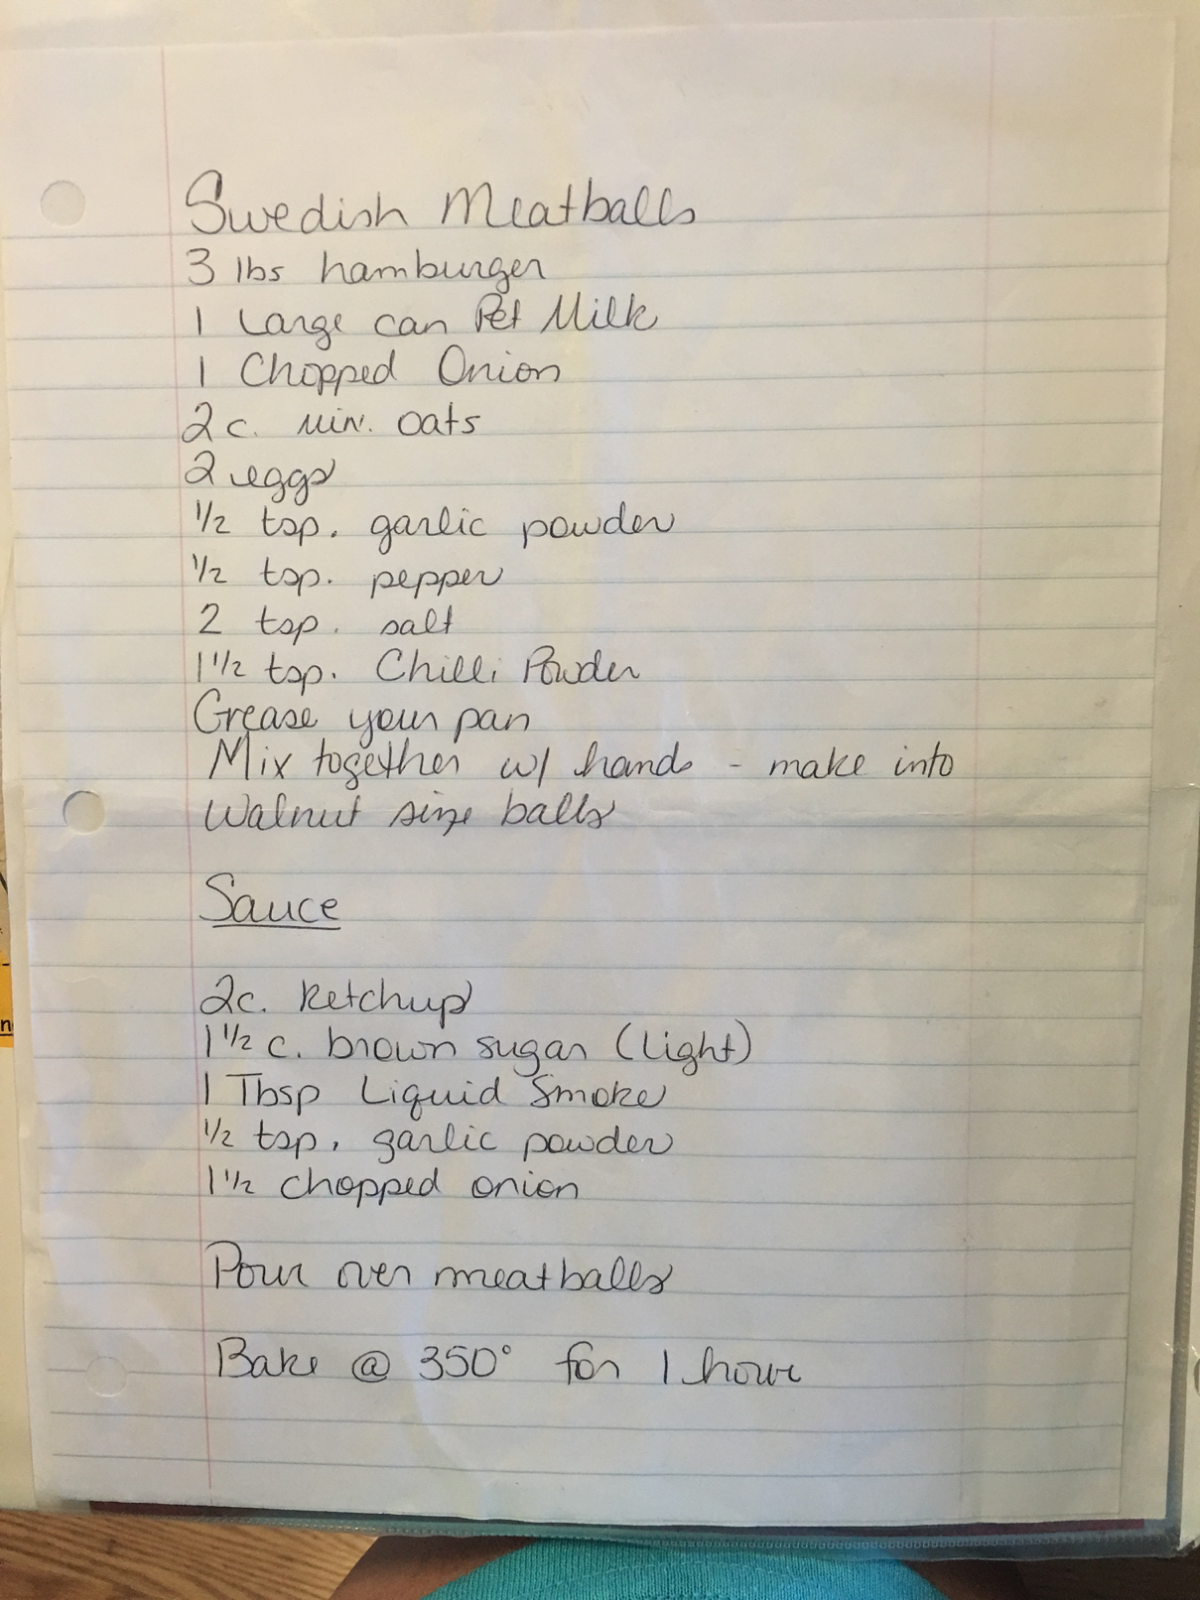 Swedish Meatballs
3 lbs hamburger
1 Large can Pet Milk
1 Chopped Onion
2 c. min. oats
2 eggs
1/2 tsp. garlic powder
1/2 tsp. pepper
2 tsp. salt
1 1/2 tsp. Chilli Powder
Grease your pan
Mix together w/ hands - make into
Walnut size balls
Sauce
2c. Ketchup
1 1/2 c. brown sugar (Light)
1 Tbsp Liquid Smoke
1/2 tsp. garlic powder
1 1/2 chopped onion
Pour over meatballs
Bake @ 350° for 1 hour